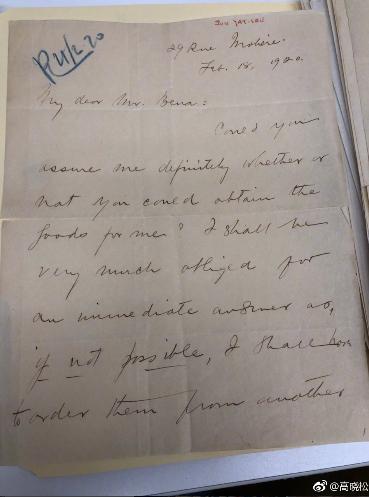 SUN YAT-SEN
R 21/2 20
29 Rue Molière.
Feb. 18, 1920.
My dear Mr. Bena:
Could you
assure me definitely whether or
not you could obtain the
goods for me? I shall be
very much obliged for
an immediate answer as,
if not possible, I shall have
to order them from another
@高晓松